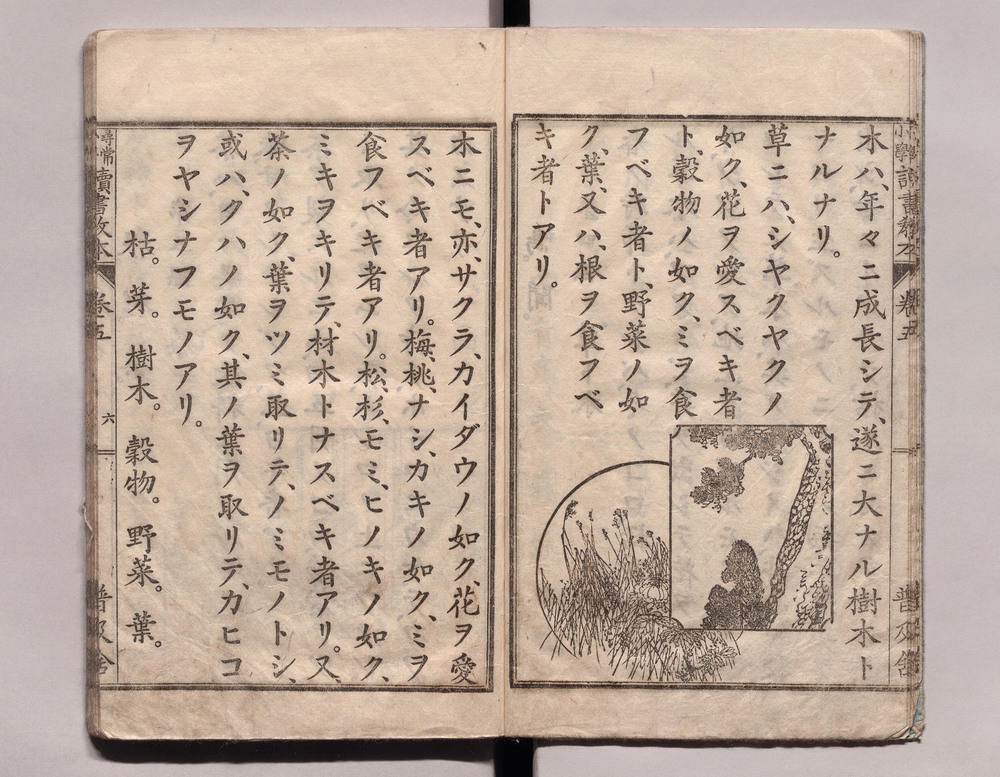 木ハ、年々ニ成長シテ、遂ニ大ナル樹木ト
ナルナリ。
草ニハ、シヤクヤクノ
如ク、花ヲ愛スベキ者
ト、穀物ノ如ク、ミヲ食
フベキ者ト、野菜ノ如
ク、葉、又ハ、根ヲ食フベ
キ者トアリ。
木ニモ、亦、サクラ、カイダウノ如ク、花ヲ愛
スベキ者アリ。梅、桃、ナシ、カキノ如ク、ミヲ
食フベキ者アリ。松、杉、モミ、ヒノキノ如ク、
ミキヲキリテ、材木トナスベキ者アリ。又、
茶ノ如ク、葉ヲツミ取リテ、ノミモノトシ、
或ハ、クハノ如ク、其ノ葉ヲ取リテ、カヒコ
ヲヤシナフモノアリ。
枯。芽。樹木。穀物。野菜。葉。
尋常
讀書敎本
卷五
六
普及舍